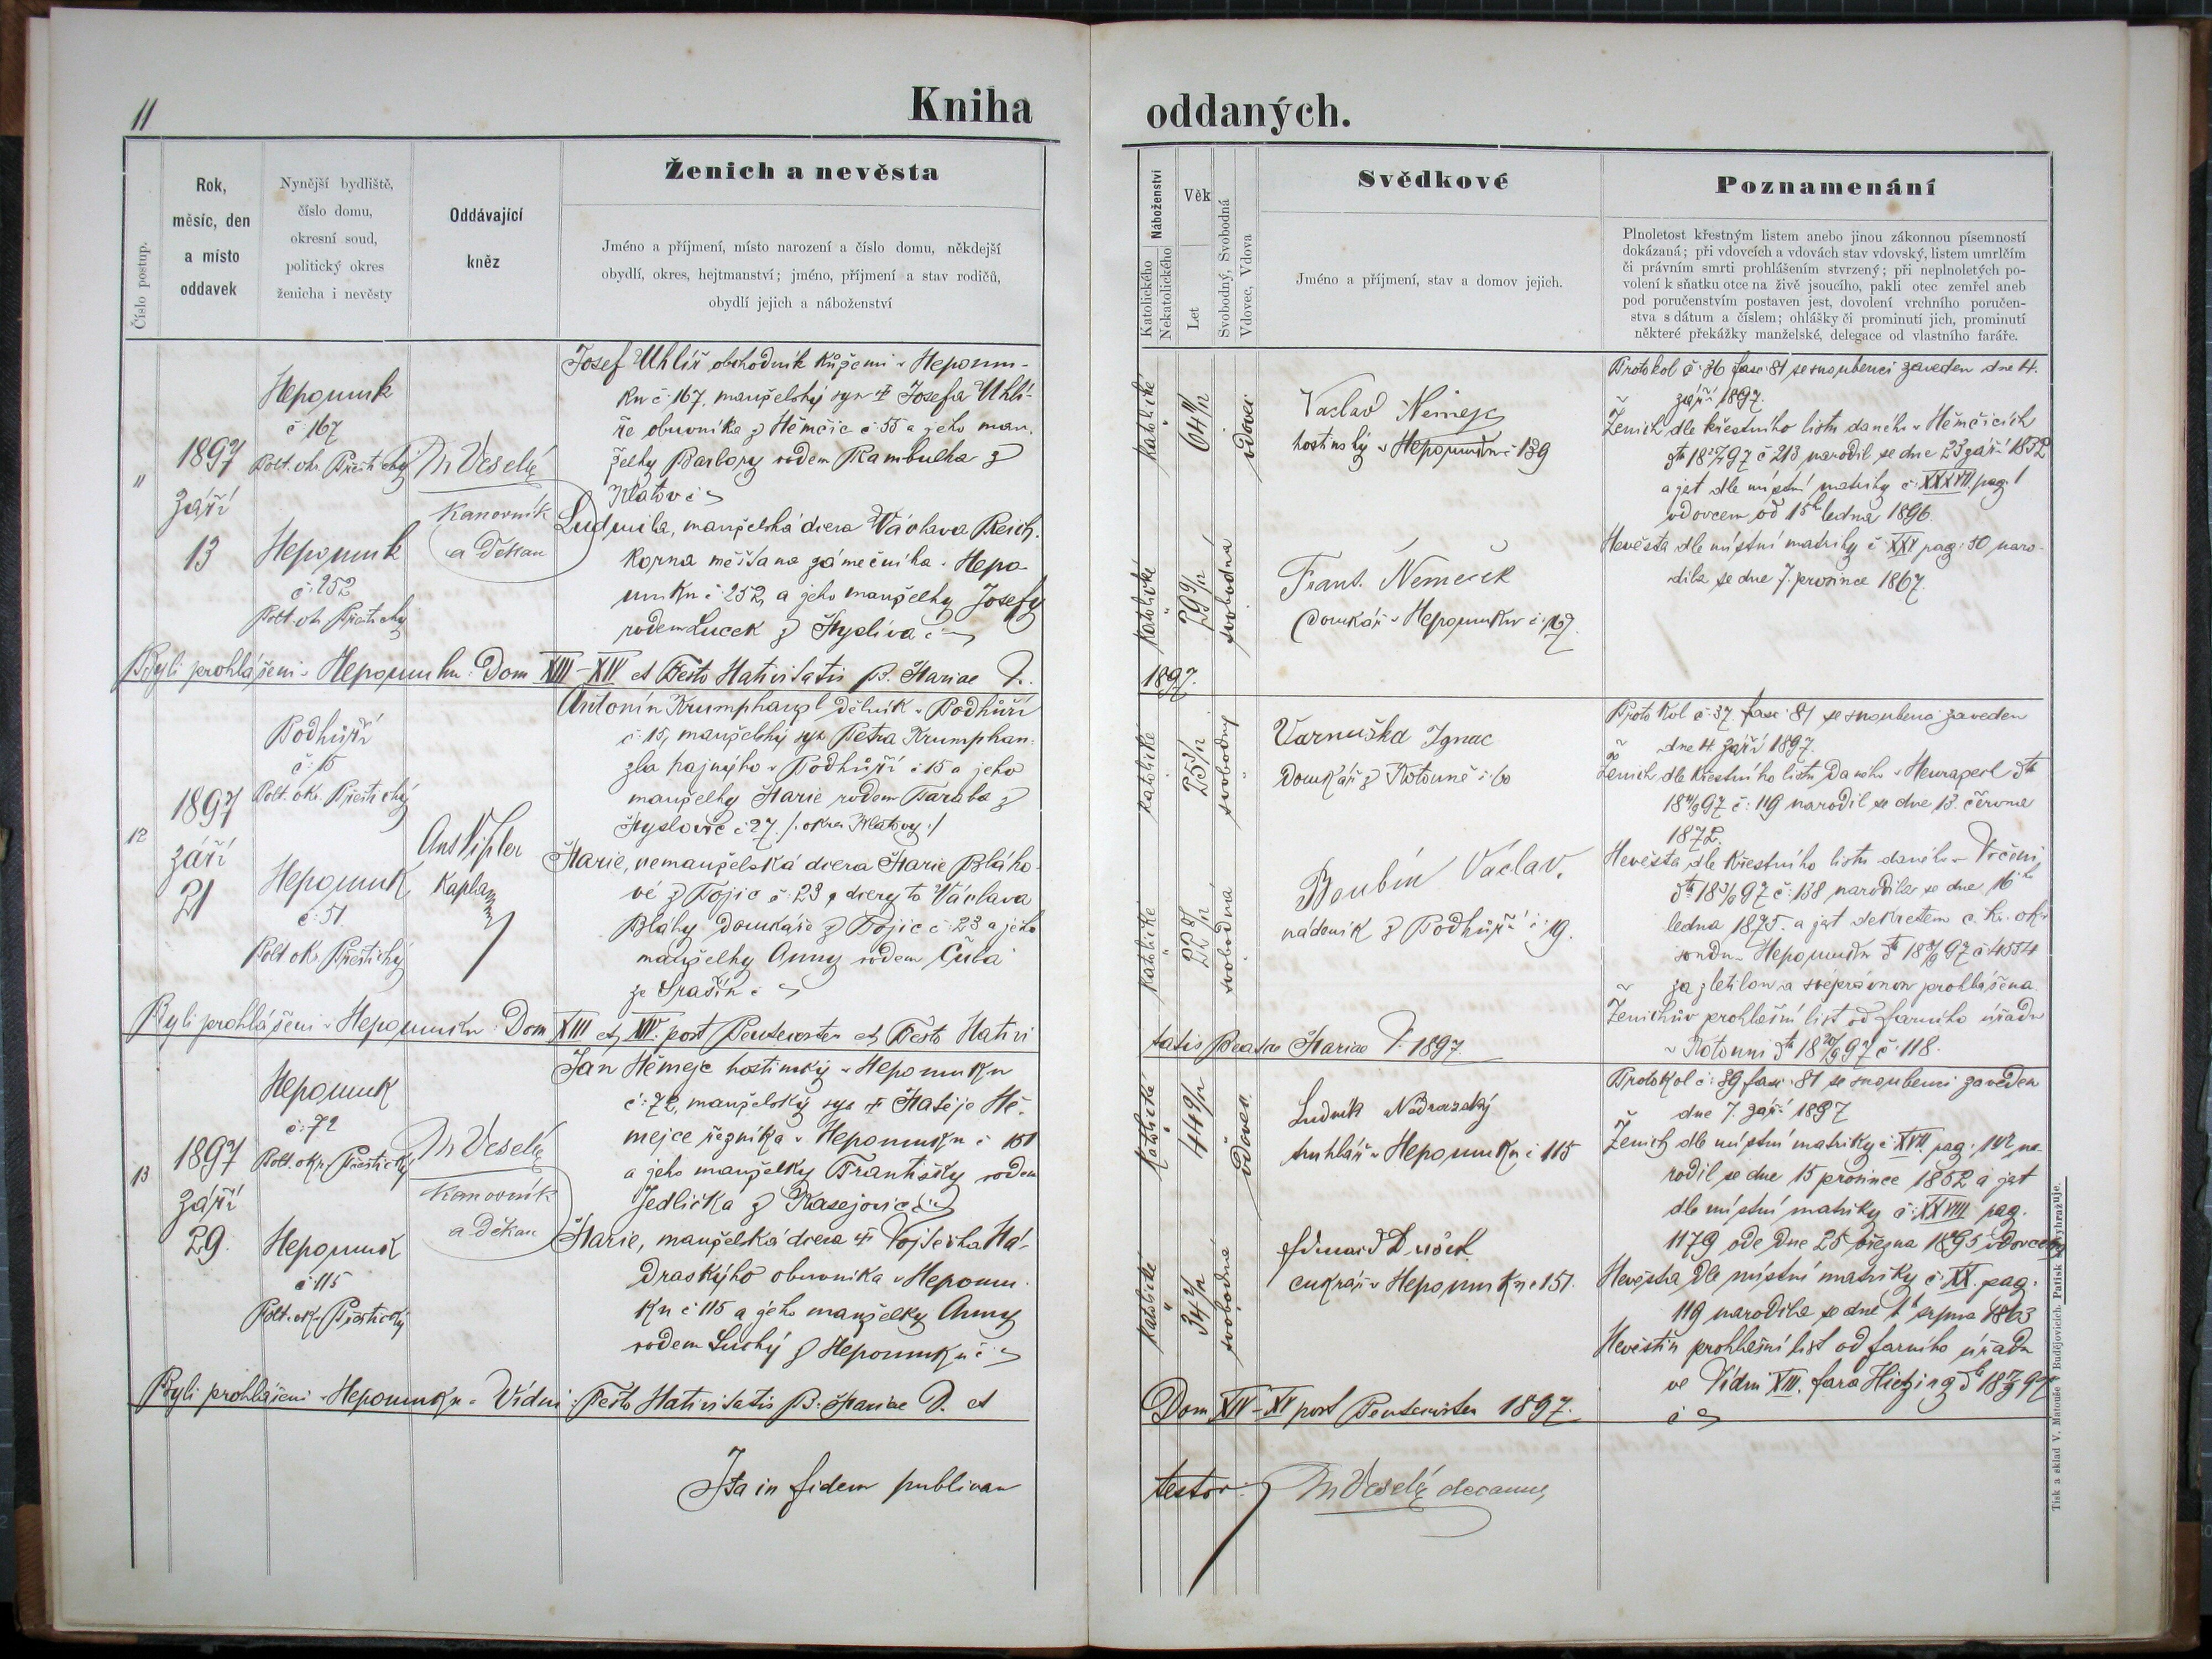 11
Kniha oddaných.
Číslo postup.
Rok,
měsíc, den
a místo
oddavek
Nynější bydliště,
číslo domu,
okresní soud,
politický okres
ženicha i nevěsty
Oddávající
kněz
Ženich a nevěsta
Jméno a příjmení, místo narození a číslo domu, někdejší
obydlí, okres, hejtmanství; jméno, příjmení a stav rodičů,
obydlí jejich a náboženství
Náboženství
Katolického
Nekatolického
Věk
Let
Svobodný, Svobodná
Vdovec, Vdova
Svědkové
Jméno a příjmení, stav a domov jejich.
Poznamenání
Plnoletost křestným listem anebo jinou zákonnou písemností
dokázaná; při vdovcích a vdovách stav vdovský, listem umrlčím
či právním smrti prohlášením stvrzený; při neplnoletých po-
volení k sňatku otce na živě jsoucího, pakli otec zemřel aneb
pod poručenstvím postaven jest, dovolení vrchního poručen-
stva s dátum a číslem; ohlášky či prominutí jich, prominutí
některé překážky manželské, delegace od vlastního faráře.
11
1897
září
13
Nepomuk
č. 167
Polt. okr. Přeštický
Nepomuk
č. 252
Polt. ok. Přeštický
M Veselý
Kanovník
a Děkan
Josef Uhlíř obchodník kůžemi v Nepomu-
ku č 167, manželský syn † Josefa Uhlí-
ře obuvníka z Němčic č 55 a jeho man-
želky Barbory rodem Rambulka z
Klatov č
Ludmila, manželská dcera Václava Reich-
korna měšťana zámečníka v Nepo
muku č 252, a jeho manželky Josefy
rodem Lucek z Myslíva č
katolické
64 11/12
vdovec
katolické
29 9/12
svobodná
Vaclav Nemejc
hostinský v Nepomuku č 139
Frant. Nemeček
Domkář v Nepomuku č. 167.
Protokol č. 36 fasc. 81 se snoubenci zaveden dne 4.
září 1897.
Ženich dle křestního listu daného v Němčicích
č 213 narodil se dne 23 září 1832
a jest dle místní matriky č. XXXVII pag. 1
vdovcem od 15ho ledna 1896.
Nevěsta dle místní matriky č. XXV pag. 50 naro-
dila se dne 7. prosince 1867.
Byli prohlášeni v Nepomuku: Dom XIII – XIV et Festo Nativitatis B. Mariae V.
1897.
12
1897
září
21
Podhůří
č. 15
Polt. okr. Přeštický
Nepomuk
č. 51
Polt ok. Přeštický
Kaplan
Antonín Krumphanzl dělník v Podhůří
č. 15, manželský syn Petra Krumphan-
zla hajného v Podhůří č 15 a jeho
manželky Marie rodem Taraba z
Myslovic č 27. /. okres Klatovy ./
Marie, nemanželská dcera Marie Bláho-
vé z Tojic č. 23, dcery to Václava
Bláhy domkáře z Tojic č. 23 a jeho
manželky Anny rodem Čuba
ze Srašín č
katolické
25 3/12
svobodný
katolické
22 8/12
svobodná
Varnuška Ignac
Domkář z Kotouně č. 60
Boubín Václav.
nádeník z Podhůří č. 19.
Protokol č. 37 fasc. 81 se snoubenci zaveden
dne 4 září 1897.
Ženich dle křestního listu daného v Neuraperl
č. 119 narodil se dne 13. června
1872.
Nevěsta dle křestního listu daného v Vrčeni
č. 138 narodila se dne 16ho
ledna 1875. a jest dekretem c. k. okr
soudu v Nepomuku č 4554
za zletilou a svéprávnou prohlášena.
Ženichův prohlešní list od farního úřadu
v Kotouni č. 118.
Byli prohlášeni v Nepomuku: Dom XIII et XIV. post Pentecosten et Festo Nativi
tatis Beatae Mariae V. 1897.
13
1897
září
29.
Nepomuk
č. 72
Polt. okr. Přeštický
Nepomuk
č 115
Polt. okr. Přeštický
M Veselý
Kanovník
a Děkan
Jan Němejc hostinský v Nepomuku
č. 72, manželský syn † Matěje Ně-
mejce řezníka v Nepomuku č 151
a jeho manželky Františky rodem
Jedlička z Kasejovic č.
Marie, manželská dcera † Vojtěcha Ná-
draského obuvníka v Nepomu-
ku č 115 a jeho manželky Anny
rodem Suchý z Nepomuku č
katolické
44 9/12
vdovec.
katolické
34 2/12
svobodná
Ludvík Nádrazský
truhlář v Nepomuku č 115
Eduard Dušek
cukrář v Nepomuku č 151.
Protokol č. 39 fasc. 81 se snoubenci zaveden
dne 7. září 1897
Ženich dle místní matriky č XVII. pag. 142 na-
rodil se dne 15 prosince 1852 a jest
dle místní matriky č. XXVIII pag.
1179 ode dne 25 března 1895 vdovcem
Nevěsta dle místní matriky č. XX. pag.
119 narodila se dne 1ho srpna 1863
Nevěstin prohlešní list od farního úřadu
ve Vídni XIII. fara Hietzing
č
Byli prohlášeni v Nepomuku v Vídni: Festo Nativitatis B. Mariae V. et
Dom XIV – XV post Pentecosten 1897.
Ita in fidem publicam
testor. M Veselý decanus
Tisk a sklad V. Matouše v Budějovicích. Patisk se vyhražuje.